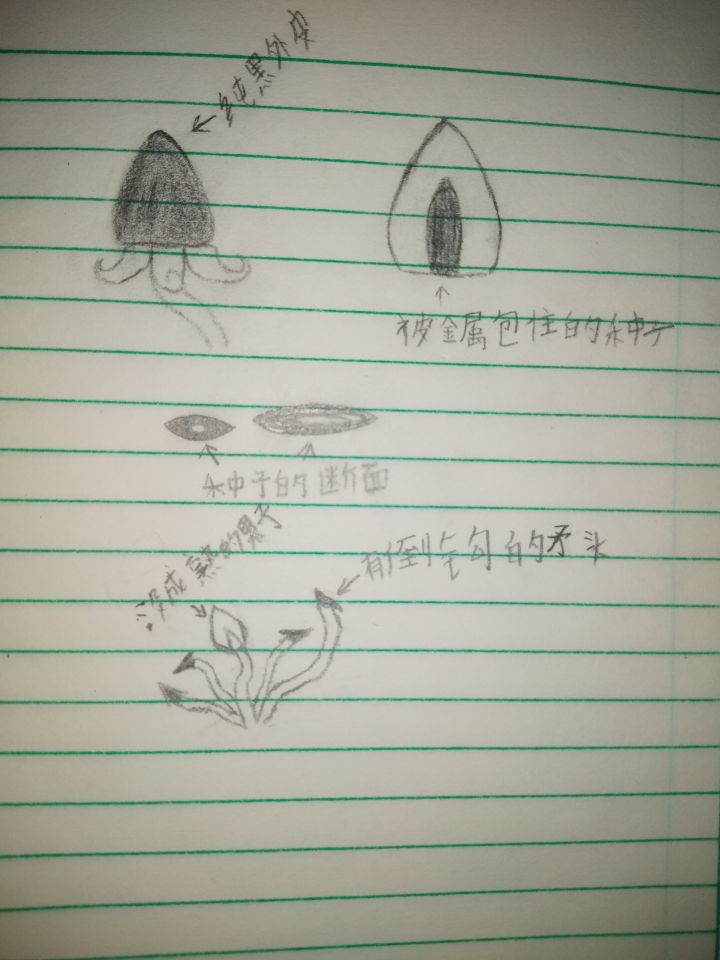 纯黑外皮
被金属包住的种子
种子的断面
没成熟的果子
有倒钩的矛头